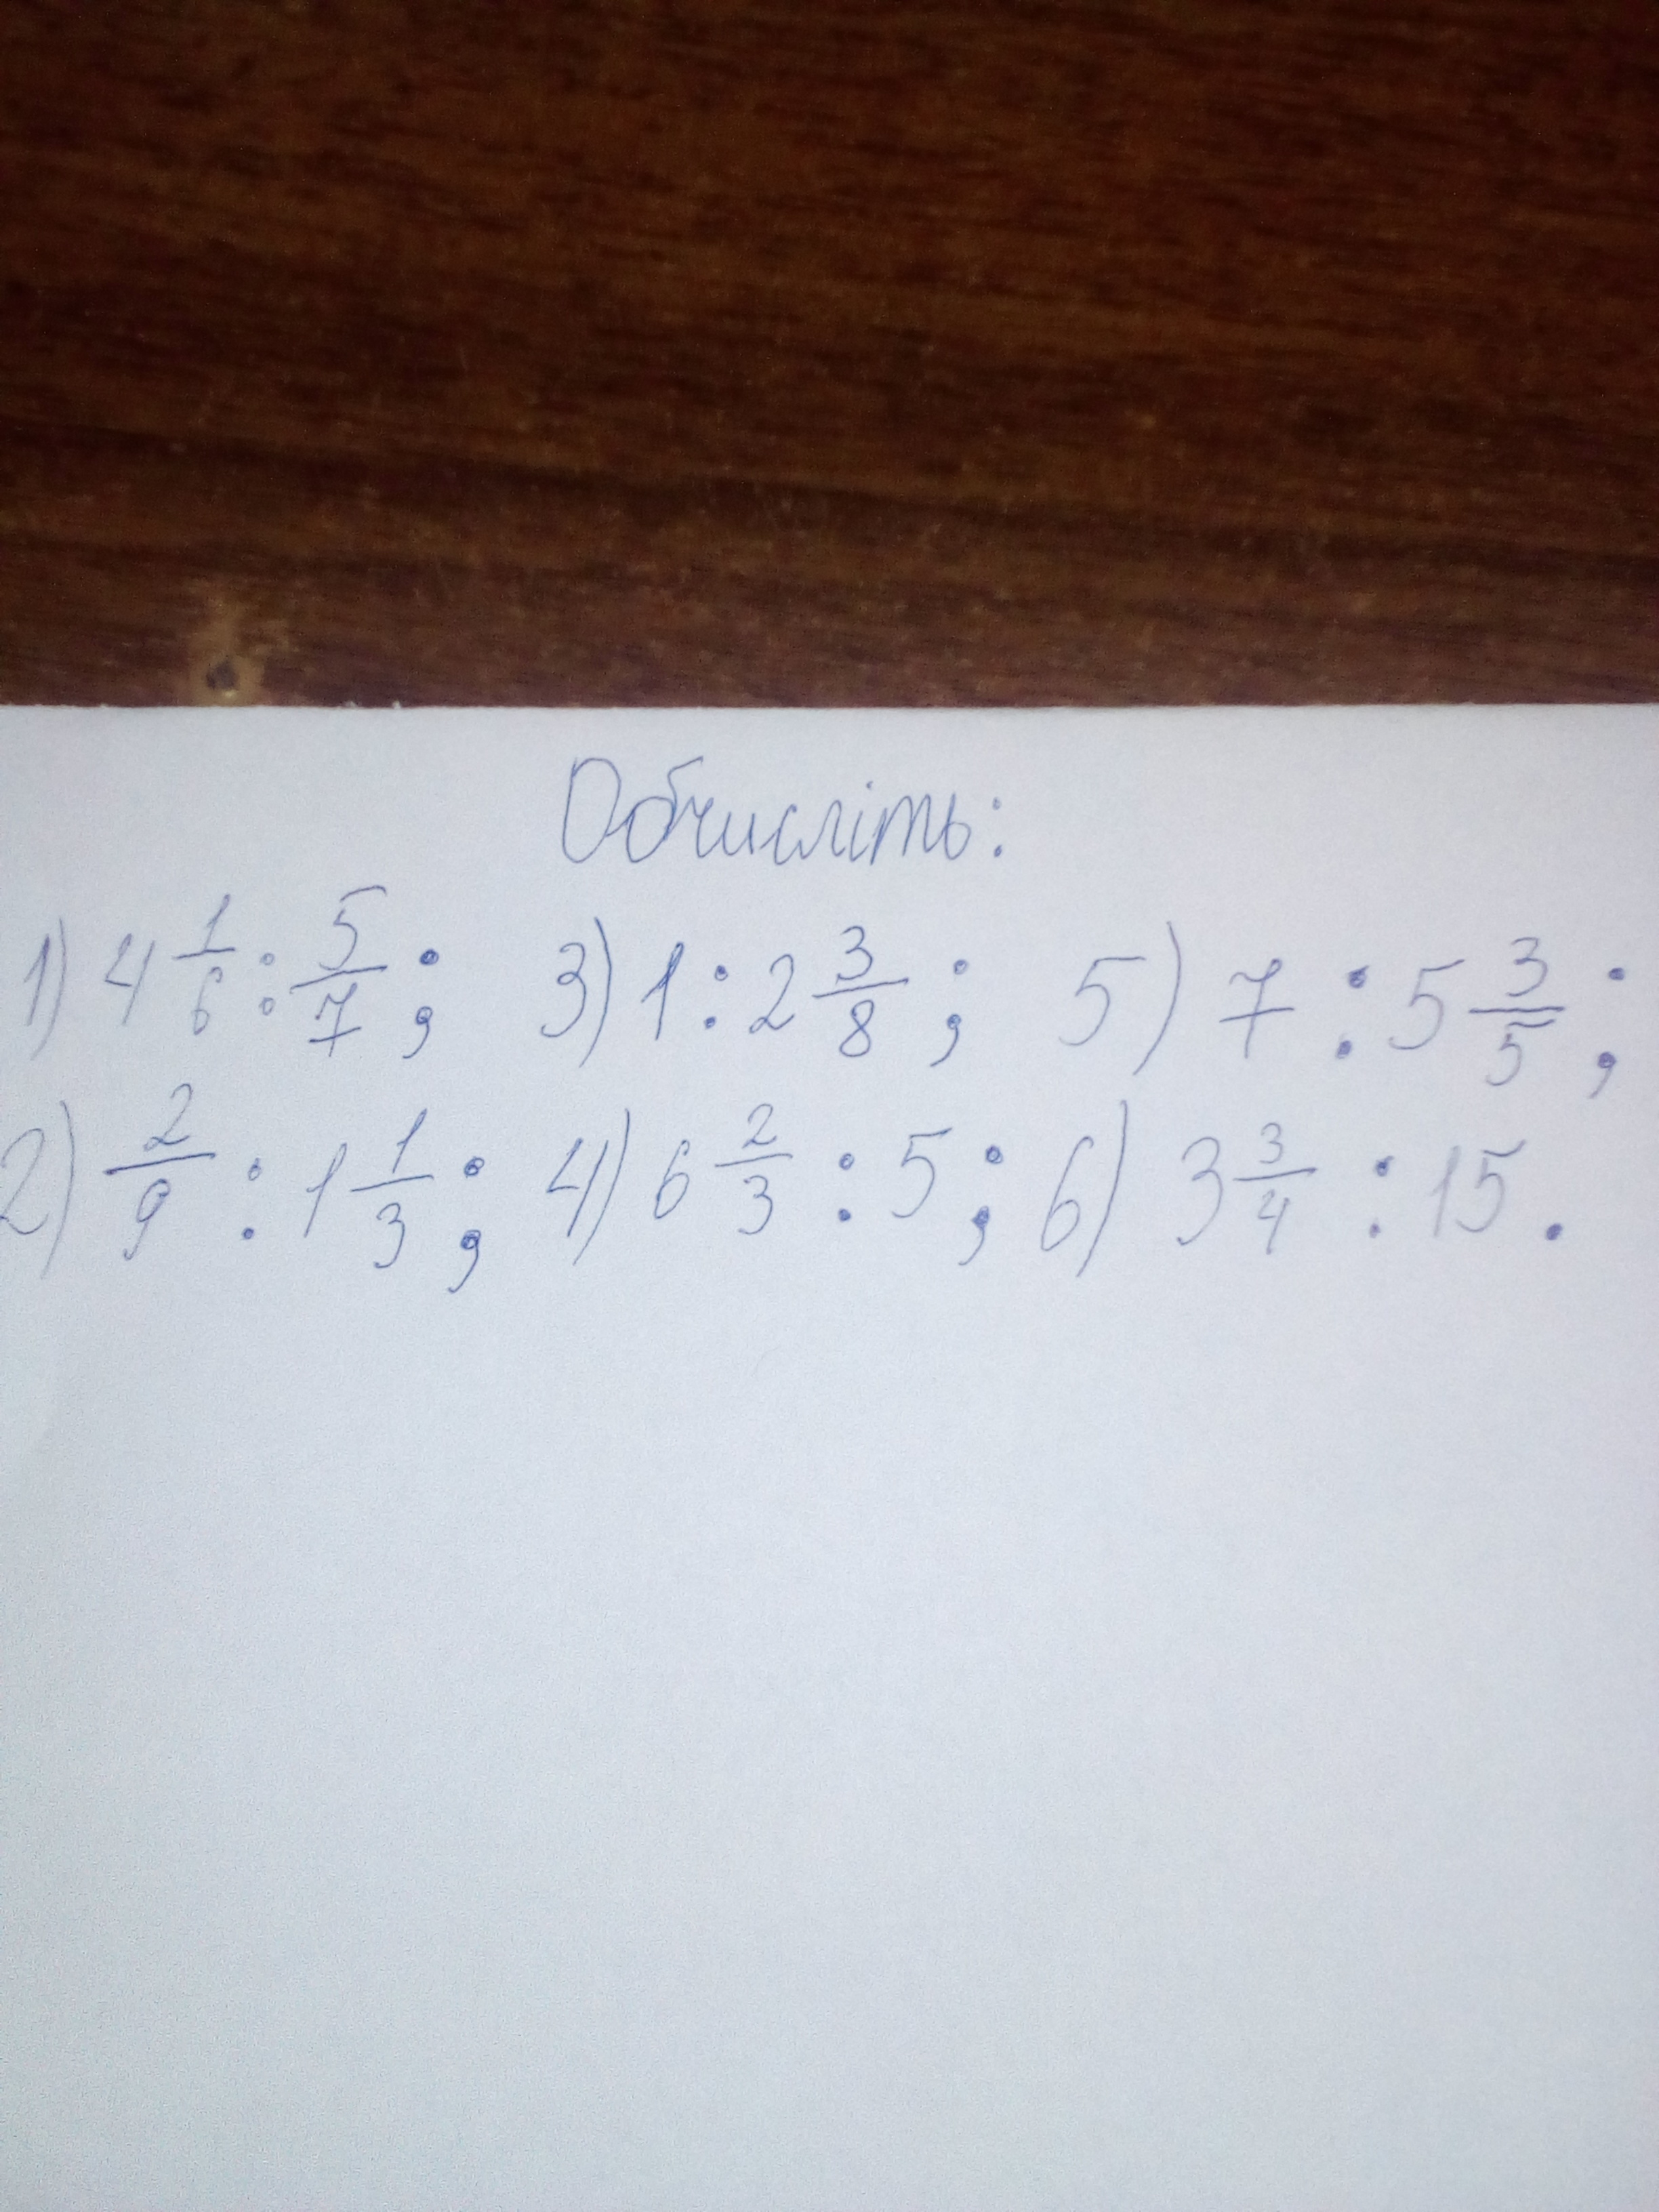 Обчисліть:
1) 4 1/6 : 5/7 ; 3) 1 : 2 3/8 ; 5) 7 : 5 3/5 ;
2) 2/9 : 1 1/3 ; 4) 6 2/3 : 5 ; 6) 3 3/4 : 15 .